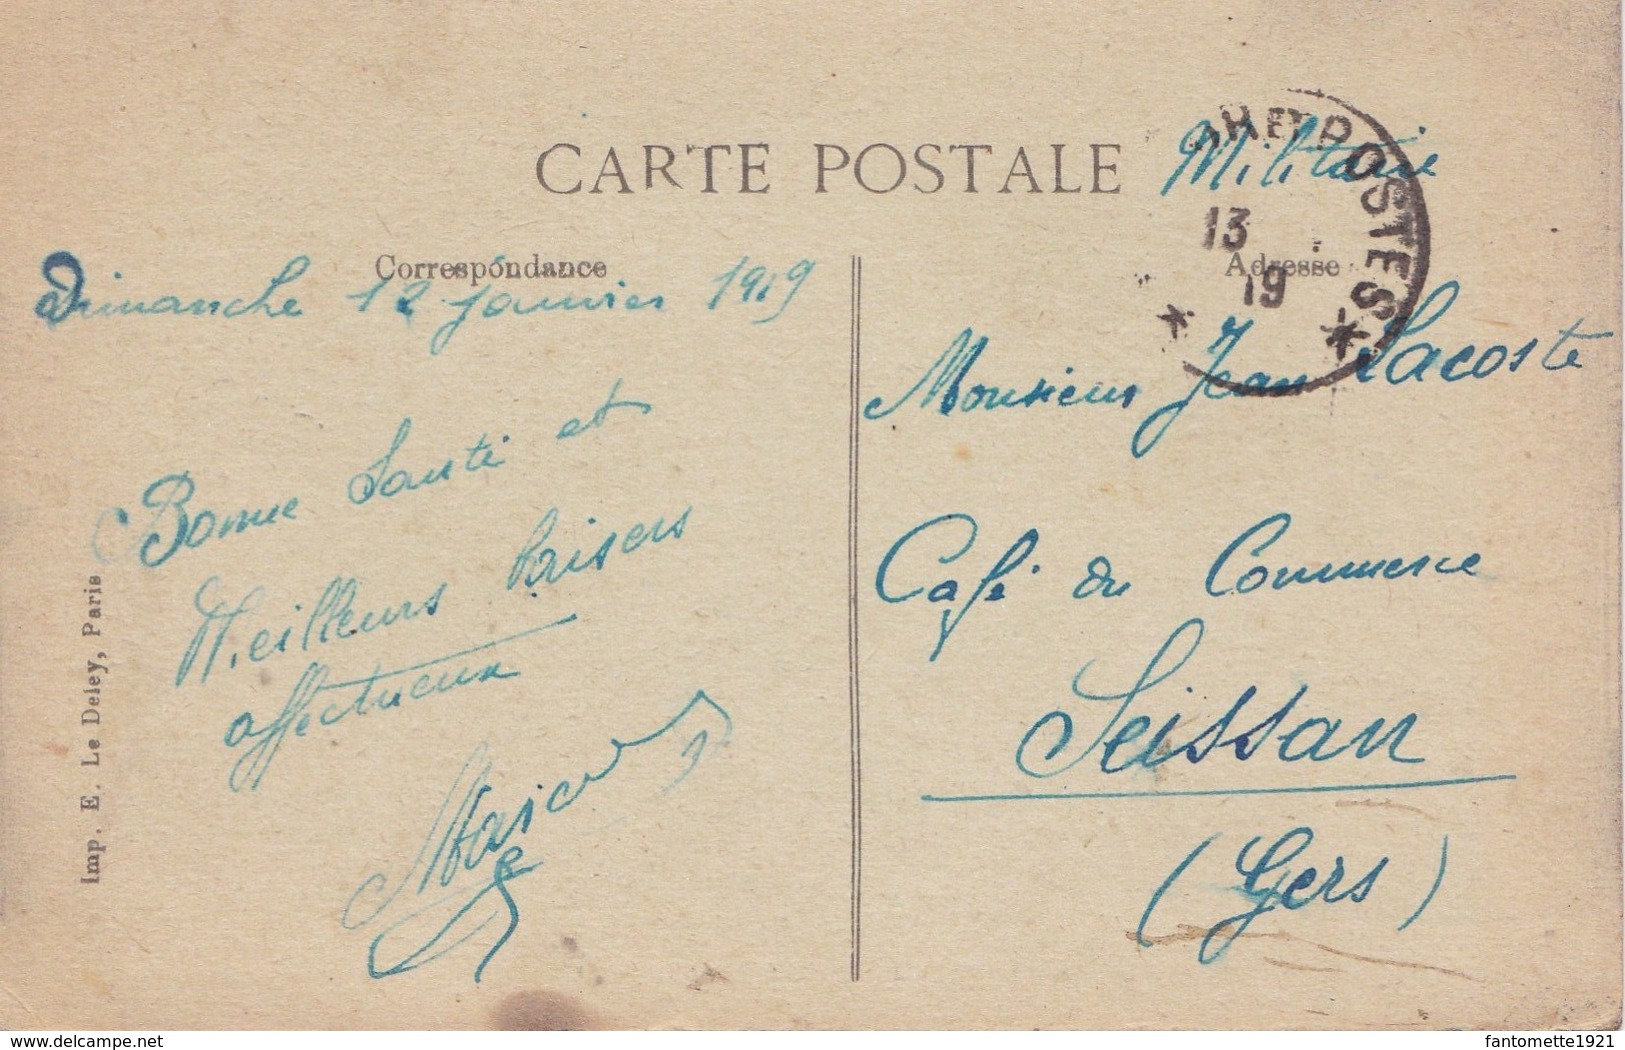 CARTE POSTALE
Militaire
POSTES
13
19
Correspondance
Adresse
Dimanche 12 janvier 1919
Bonne Santé et
Meilleurs baisers
affectueux
Monsieur Jean Lacoste
Café du Commerce
Seissan
(Gers)
Imp. E. Le Deley, Paris
www.delcampe.net
fantomette1921